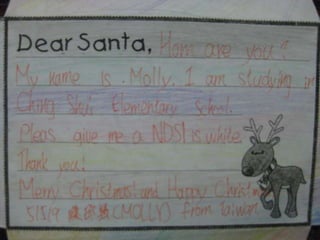 Dear Santa, How are you?
My name is Molly. I am studying in
Ching Shui Elementary School.
Pleas give me a NDSI is white.
Thank you!
Merry Christmas! and Happy Christmas
(MOLLY) from Taiwan